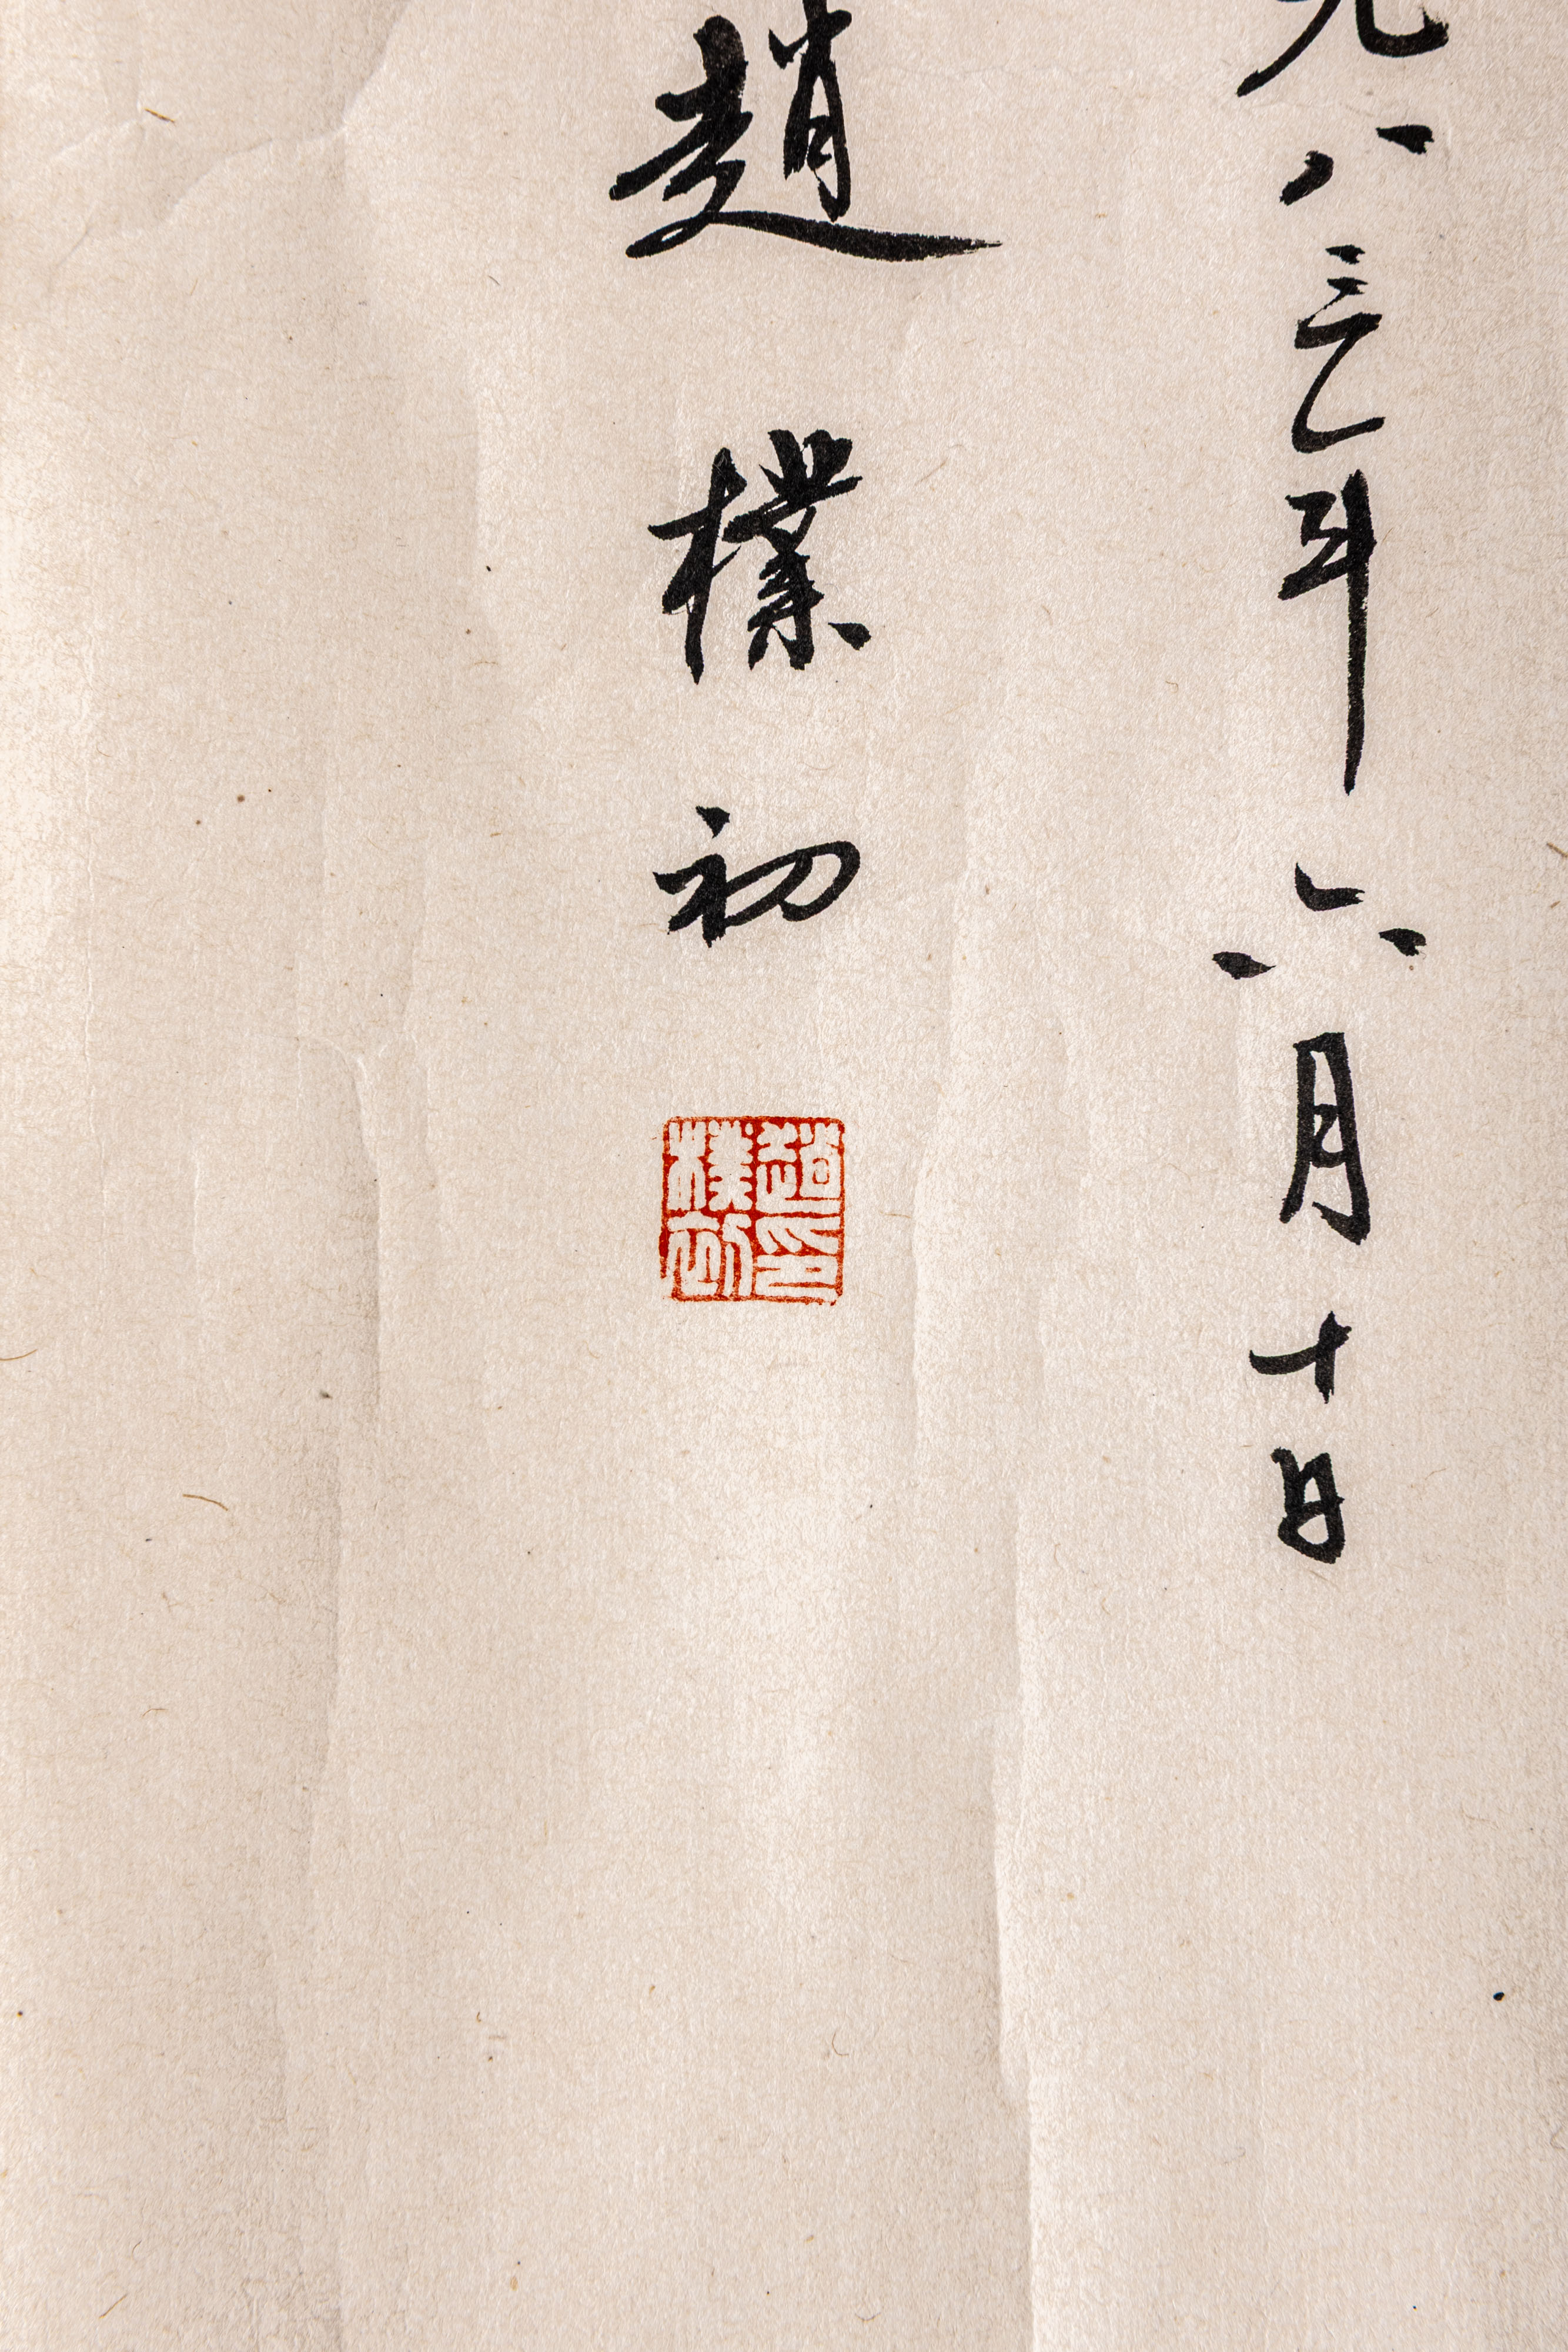 九八三年六月十日
趙樸初
趙印
樸初